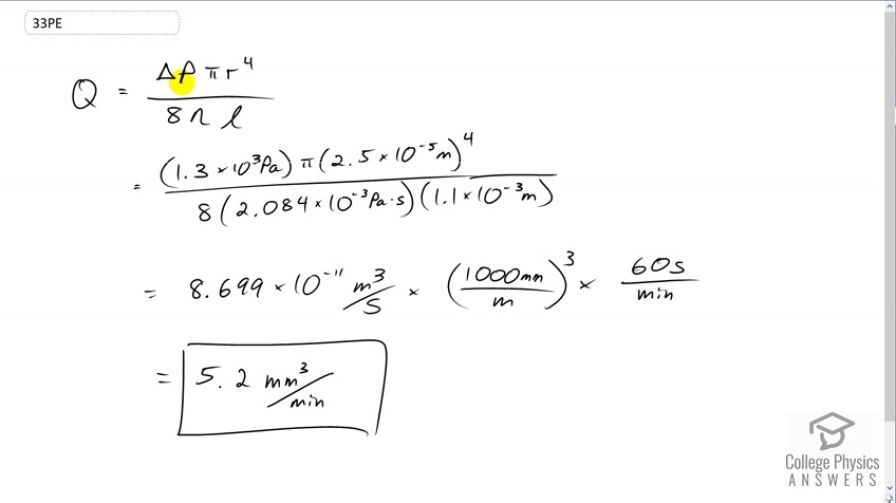 33PE
Q = ΔP π r⁴ / 8 η l
= (1.3 × 10³ Pa) π (2.5 × 10⁻⁵ m)⁴ / 8 (2.084 × 10⁻³ Pa·s) (1.1 × 10⁻³ m)
= 8.699 × 10⁻¹¹ m³/s × (1000 mm / m)³ × 60 s / min
= 5.2 mm³/min
College Physics
ANSWERS